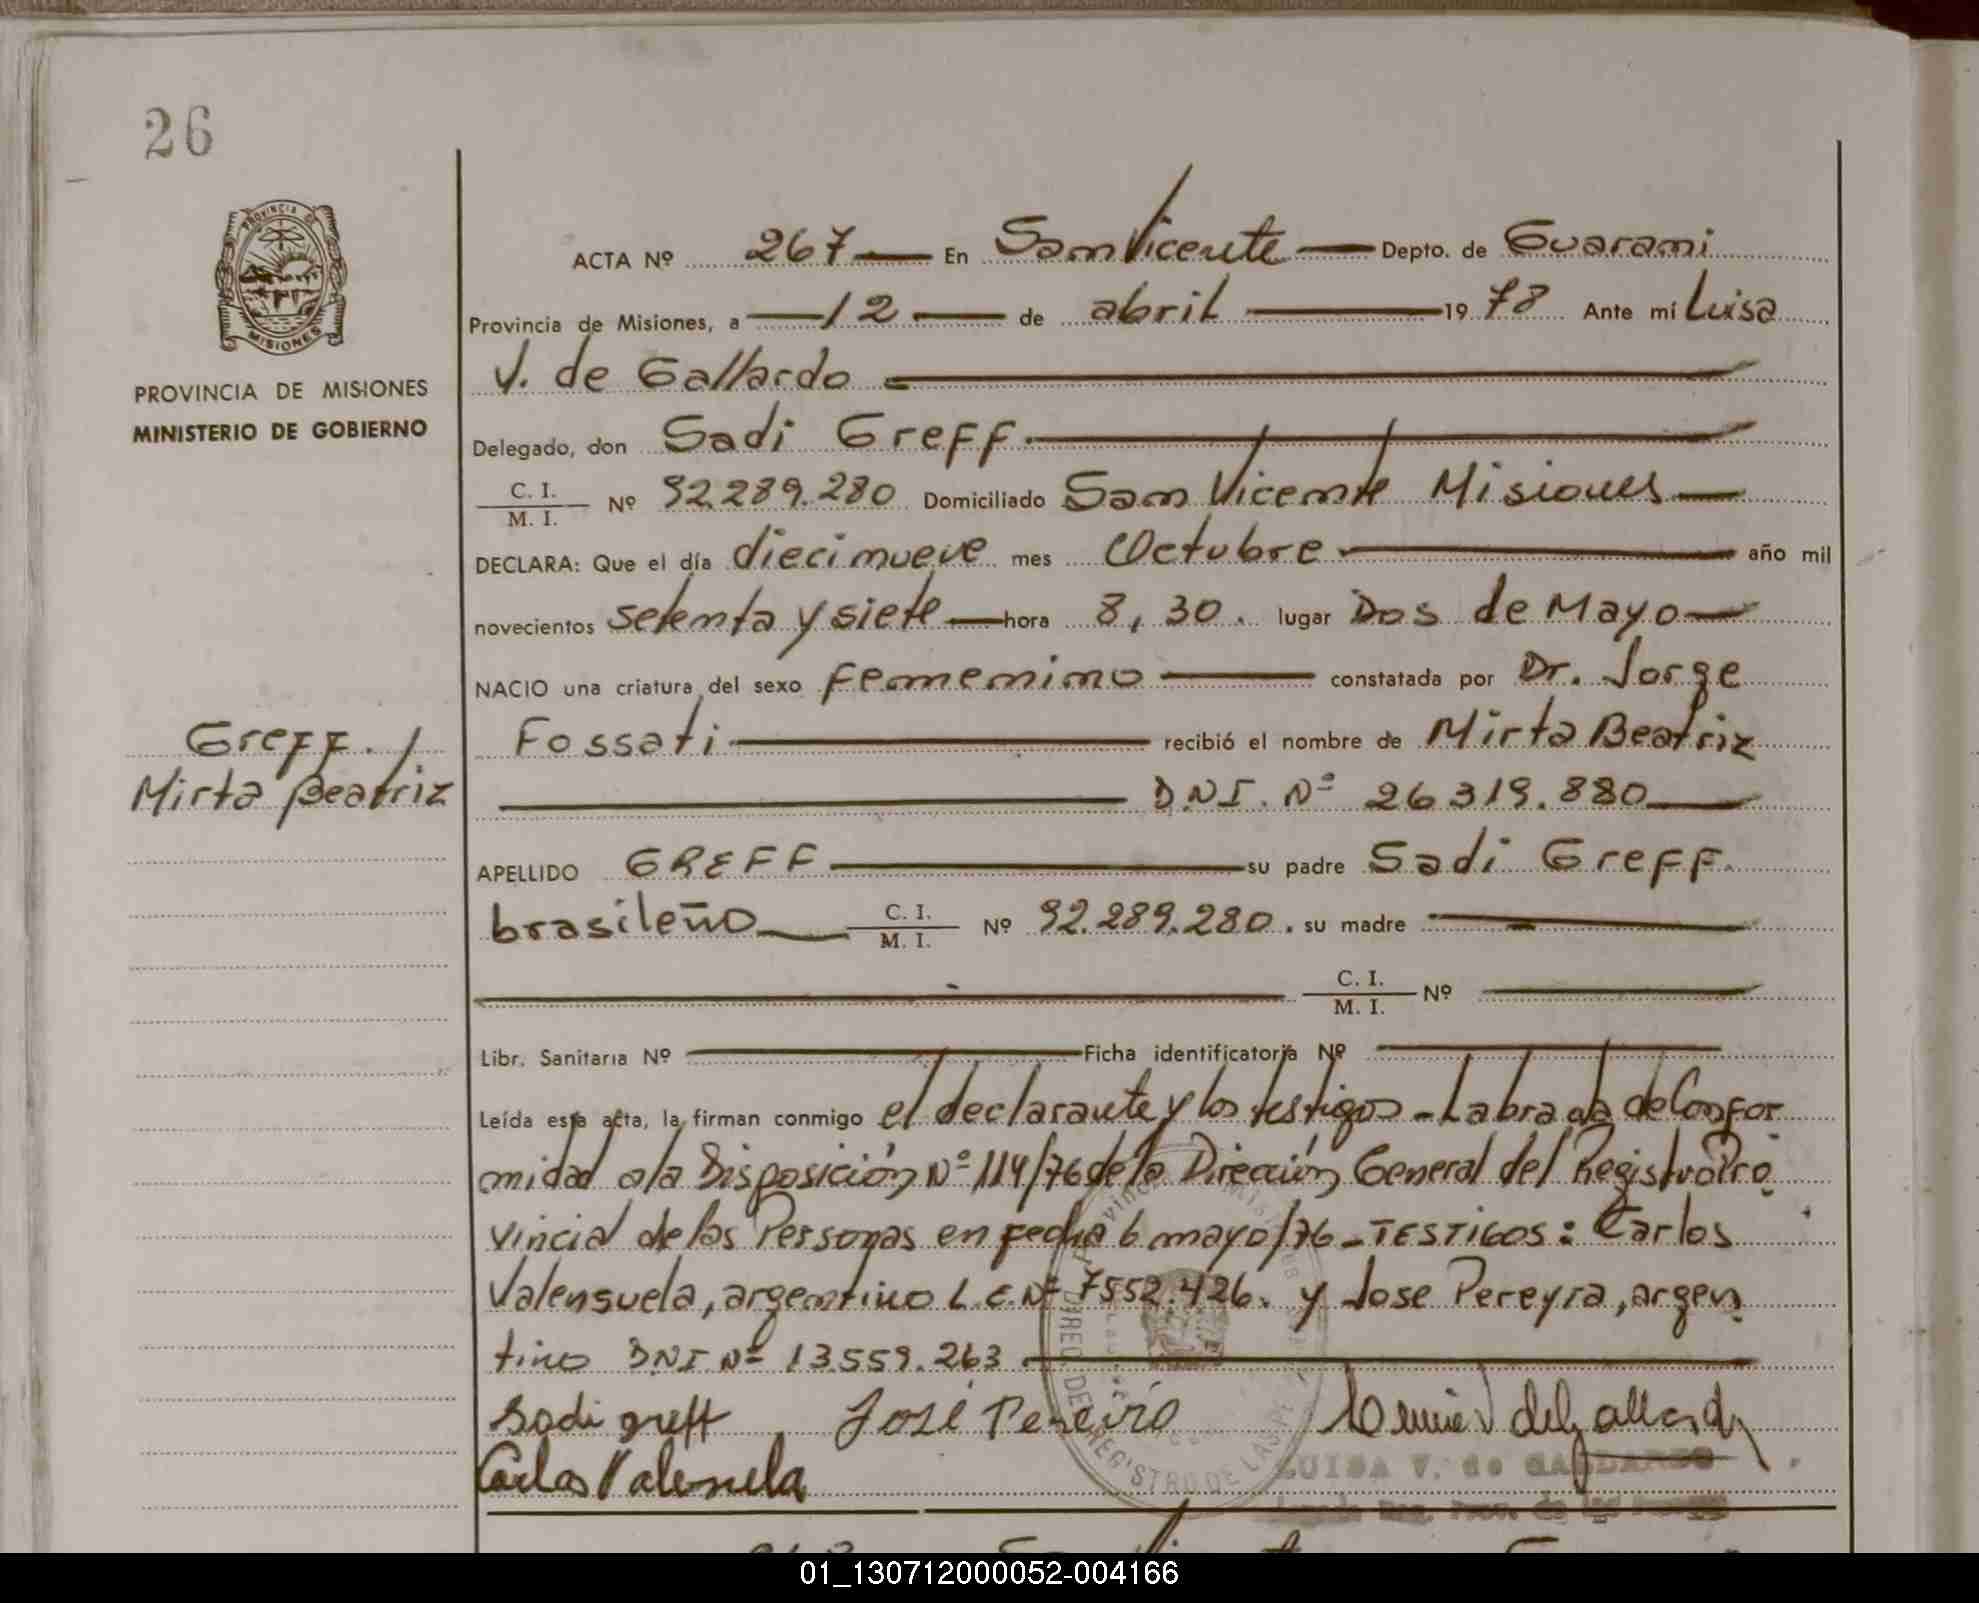 26
PROVINCIA DE
MISIONES
PROVINCIA DE MISIONES
MINISTERIO DE GOBIERNO
ACTA Nº 267 En San Vicente Depto. de Guarani
Provincia de Misiones, a 12 de abril 1978 Ante mí Luisa
V. de Gallardo
Delegado, don Sadi Greff.
C. I. / M. I. Nº 92.289.280 Domiciliado San Vicente Misiones
DECLARA: Que el día diecinueve mes Octubre año mil
novecientos setenta y siete hora 8,30. lugar Dos de Mayo
NACIO una criatura del sexo femenino constatada por Dr. Jorge
Fossati recibió el nombre de Mirta Beatriz
D.N.I. Nº 26319.880
Greff.
Mirta Beatriz
APELLIDO GREFF su padre Sadi Greff.
brasileño C. I. / M. I. Nº 92.289.280. su madre
C. I. / M. I. Nº
Libr. Sanitaria Nº Ficha identificatoria Nº
Leída esta acta, la firman conmigo el declarante y los testigos - Labrada de Confor
midad a la Disposición Nº 114/76 de la Dirección General del Registro Pro
vincial de las Personas en fecha 6 mayo/76 - TESTIGOS: Carlos
Valensuela, argentino L.E. Nº 7552.426. y Jose Pereyra, argen
tino DNI Nº 13.559.263
Sadi greff José Pereira
Carlos Valensuela
LUISA V. de GALLARDO
01_130712000052-004166